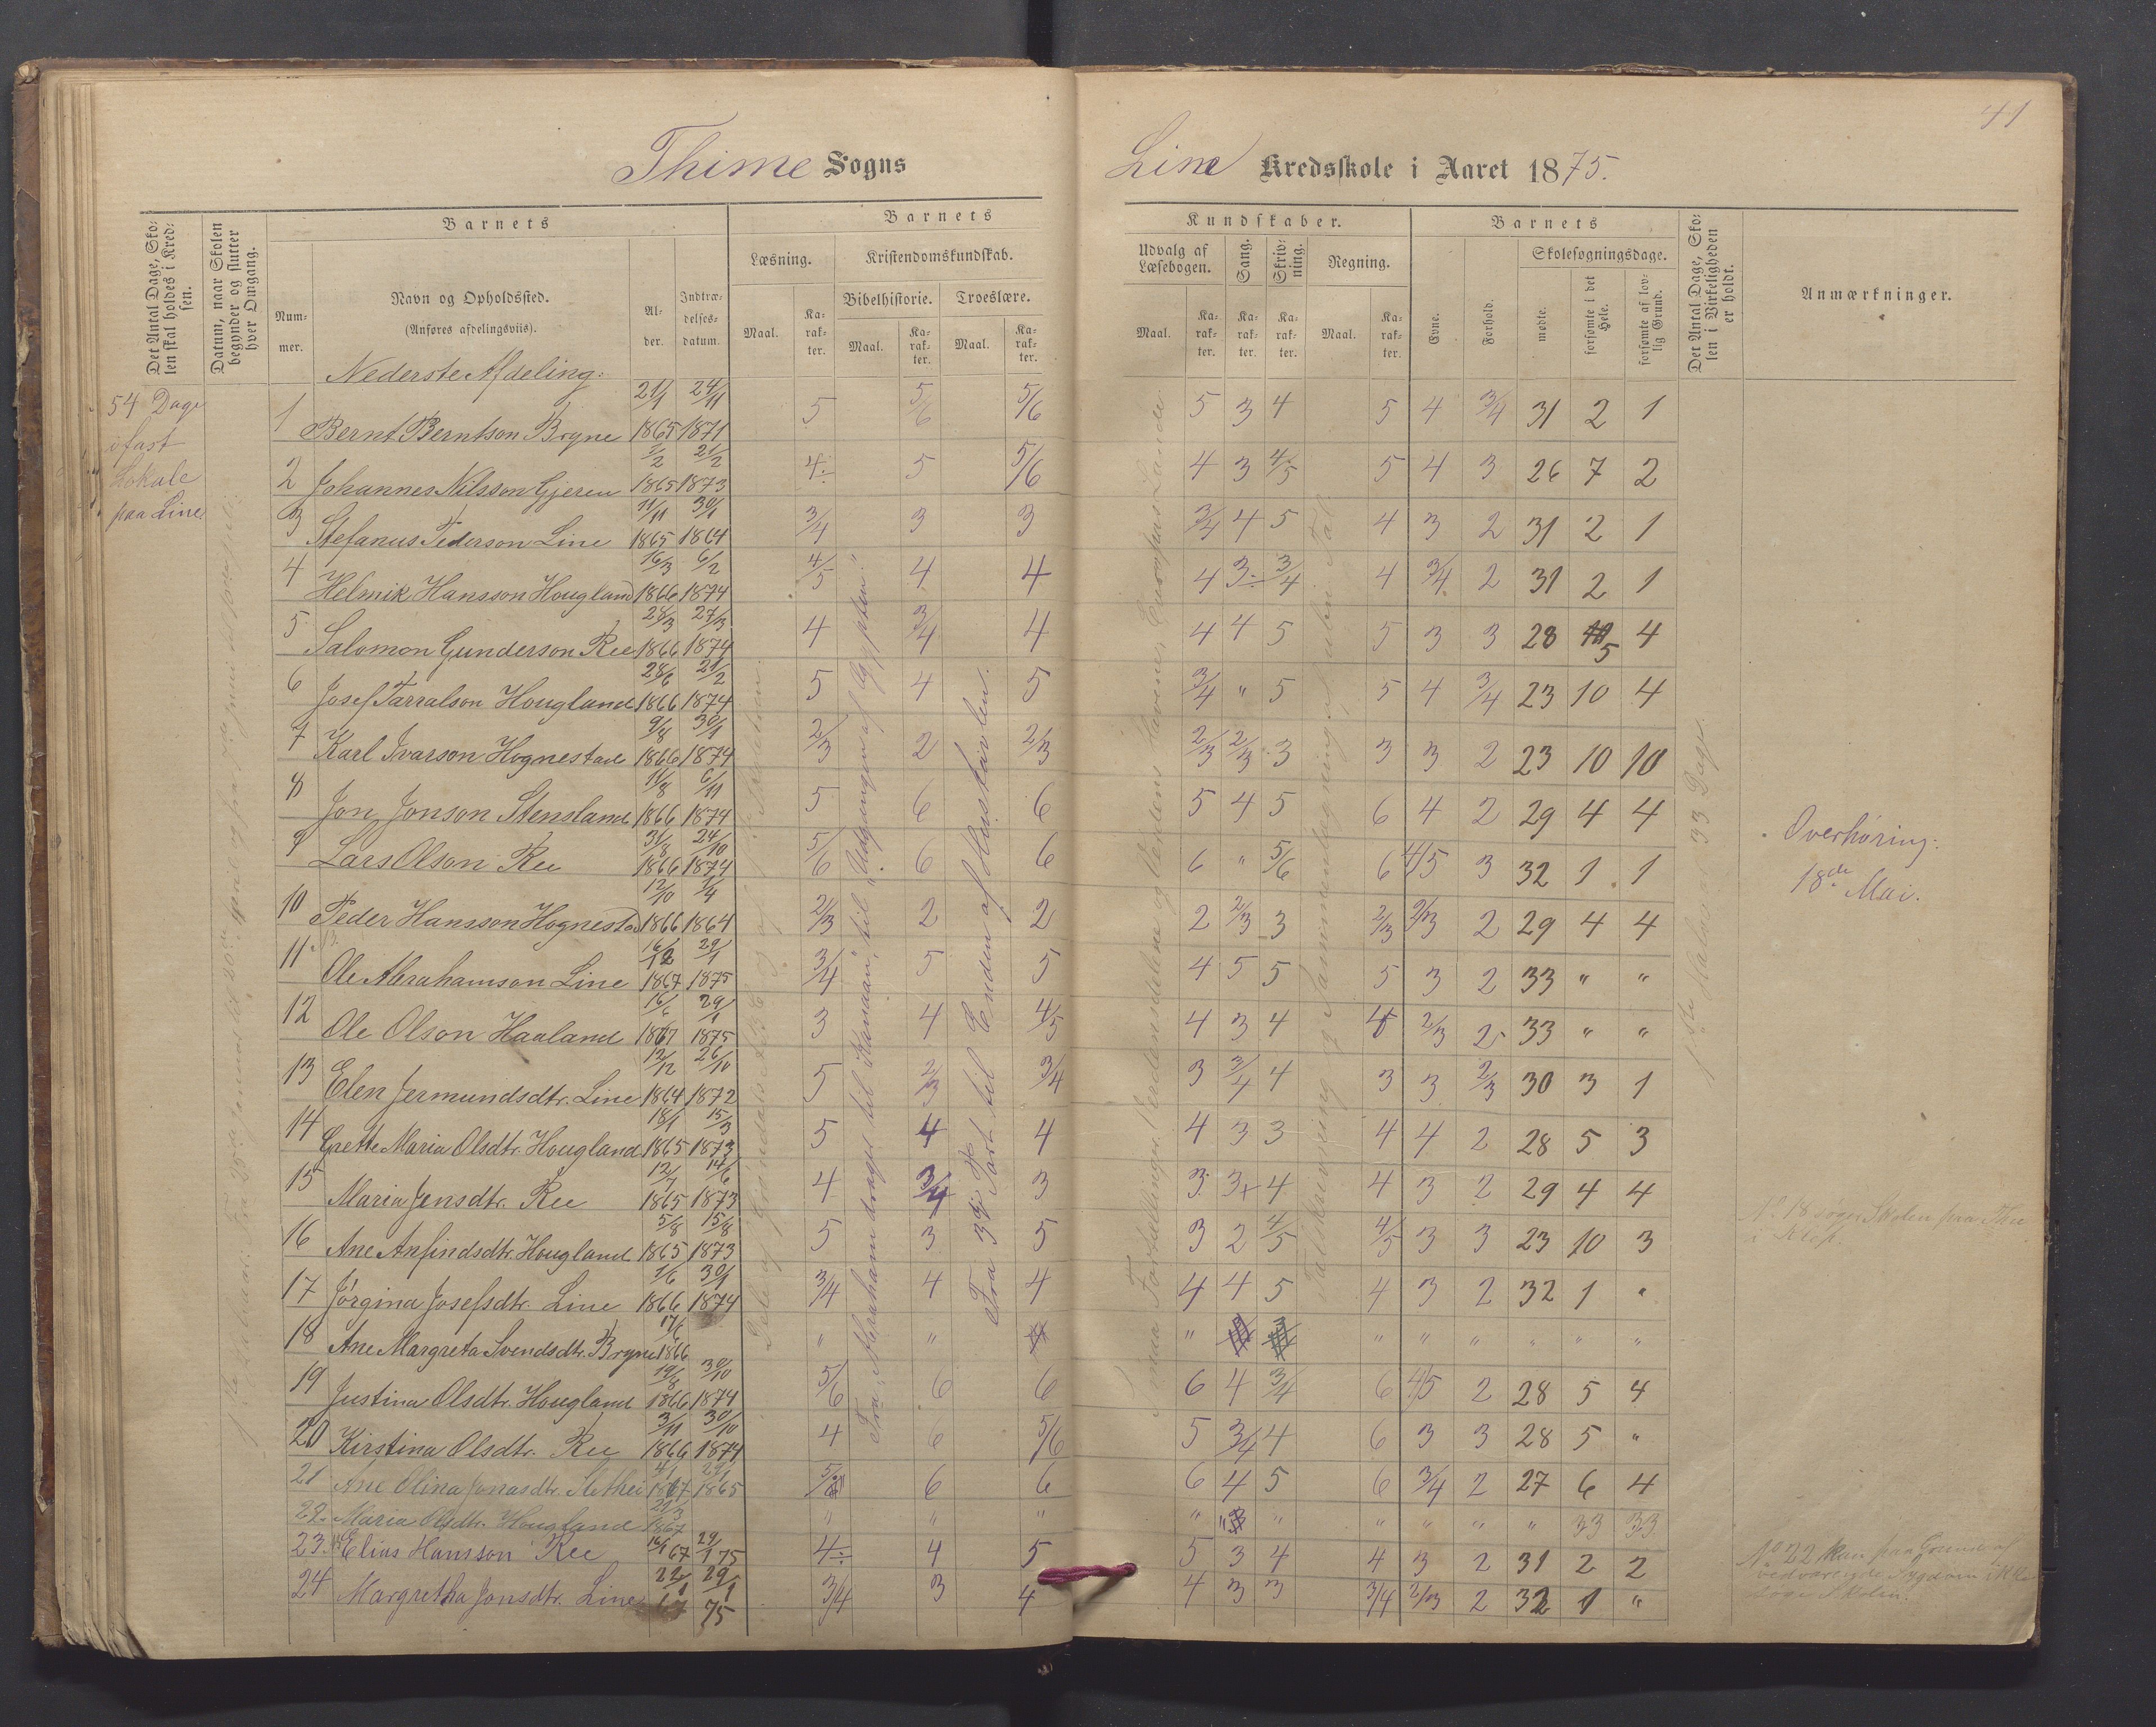 41
Thime Sogns
Line Kredsskole i Aaret 1875.
Det Antal Dage, Skolen skal holdes i Kredsen.
Datum, naar Skolen begynder og slutter hver Omgang.
Barnets
Nummer.
Navn og Opholdssted.
(Anføres afdelingsviis).
Alder.
Indtrædelsesdatum.
Barnets
Læsning.
Kristendomskundskab.
Bibelhistorie. Troeslære.
Maal. Karakter. Maal. Karakter. Maal. Karakter.
Kundskaber.
Udvalg af Læsebogen. Sang. Skrivning. Regning.
Maal. Karakter. Karakter. Karakter. Maal. Karakter.
Barnets
Evne. Forhold.
Skolesøgningsdage.
mødte. forsømte i det Hele. forsømte af lovlig Grund.
Det Antal Dage, Skolen i Virkeligheden er holdt.
Anmærkninger.
Nederste Afdeling.
54 Dage
i fast
Lokale
paa Line.
1 Bernt Berntson Bryne 21/1 1865 24/11 1871 5 5/6 5/6 5 3 4 5 4 3/4 31 2 1
2 Johannes Nilsson Gjeren 2/2 1865 21/2 1873 4÷ 5 5/6 4 3 4/5 5 4 3 26 7 2
3 Stefanus Pederson Line 11/11 1865 30/1 1864 3/4 3 3 3/4 4 5 4 3 2 31 2 1
4 Helmik Hansson Hougland 16/3 1866 6/2 1874 4/5 4 4 4 3÷ 3/4 4 3/4 2 31 2 1
5 Salomon Gunderson Ree 28/3 1866 27/3 1874 4 3/4 4 4 4 5 5 3 3 28 5 4
6 Josef Tarralson Hougland 28/6 1866 21/2 1874 5 4 5 3/4 " 5 5 4 3/4 23 10 4
7 Karl Ivarson Hognestad 9/8 1866 30/1 1874 2/3 2 2/3 2/3 2/3 3 3 3 2 23 10 10
8 Jon Jonson Stensland 11/8 1866 6/11 1874 5 6 6 5 4 5 6 4 2 29 4 4
9 Lars Olson Ree 31/8 1866 24/10 1874 5/6 6 6 6 " 5/6 6 4/5 3 32 1 1
10 Peder Hansson Hognestad 12/10 1866 1/4 1864 2/3 2 2 2 2/3 3 2/3 2/3 2 29 4 4
11 Ole Abrahamson Line 16/12 1867 29/1 1875 3/4 5 5 4 5 5 5 3 2 33 " "
12 Ole Olson Haaland 16/6 1867 29/1 1875 3 4 4/5 4 3 4 4 2/3 2 33 " "
13 Elen Jermundsdtr. Line 12/12 1864 26/10 1872 5 2/3 3/4 3 3/4 4 3 3 2/3 30 3 1
14 Grette Maria Olsdtr. Hougland 18/1 1865 15/3 1873 5 4 4 4 3 3 4 4 2 28 5 3
15 Maria Jensdtr. Ree 12/7 1865 14/6 1873 4 3/4 3 3 3+ 4 4 3 2 29 4 4
16 Ane Anfindsdtr. Hougland 5/8 1865 15/8 1873 5 3 5 3 2 4/5 4/5 3 3 23 10 3
17 Jørgina Josefsdtr. Line 1/6 1866 30/1 1874 3/4 4 4 4 4 5 4 3 2 32 1 "
18 Ane Margreta Svendsdtr. Bryne 17/6 1866 " " " " " " " " "
19 Justina Olsdtr. Hougland 19/8 1866 30/10 1874 5/6 6 6 6 4 3/4 6 4/5 2 28 5 4
20 Kirstina Olsdtr. Ree 3/11 1866 30/10 1874 4 6 5/6 5 3/4 4 6 3 3 28 5 "
21 Ane Olina Jonasdtr. Slethei 4/1 1867 29/1 1865 5/6 6 6 6 4 5 6 3/4 2 27 6 4
22. Maria Olsdtr. Hougland 21/3 1867 " " " " " " " " " " 33 33
23. Elias Hansson Ree 16/1 67 29/1 75 4÷ 4 5 5 3 4 4 3 2 31 2 2
24 Margretha Jonsdtr. Line 22/1 67 29/1 75 3/4 3 4 4 3 3 3/4 2/3 2 32 1 "
Fra „Abraham drager til Kanaan“, til „Udgangen af Ægypten“.
Fra 3die Part til Enden af Huustavlen.
1ste Halvaar 33 Dage.
Overhøring:
18de Mai.
No 18 søger Skolen paa Thu
i Klep.
No 22 kan paa Grund af
vedvarende Sygdom ikke
søge Skolen.